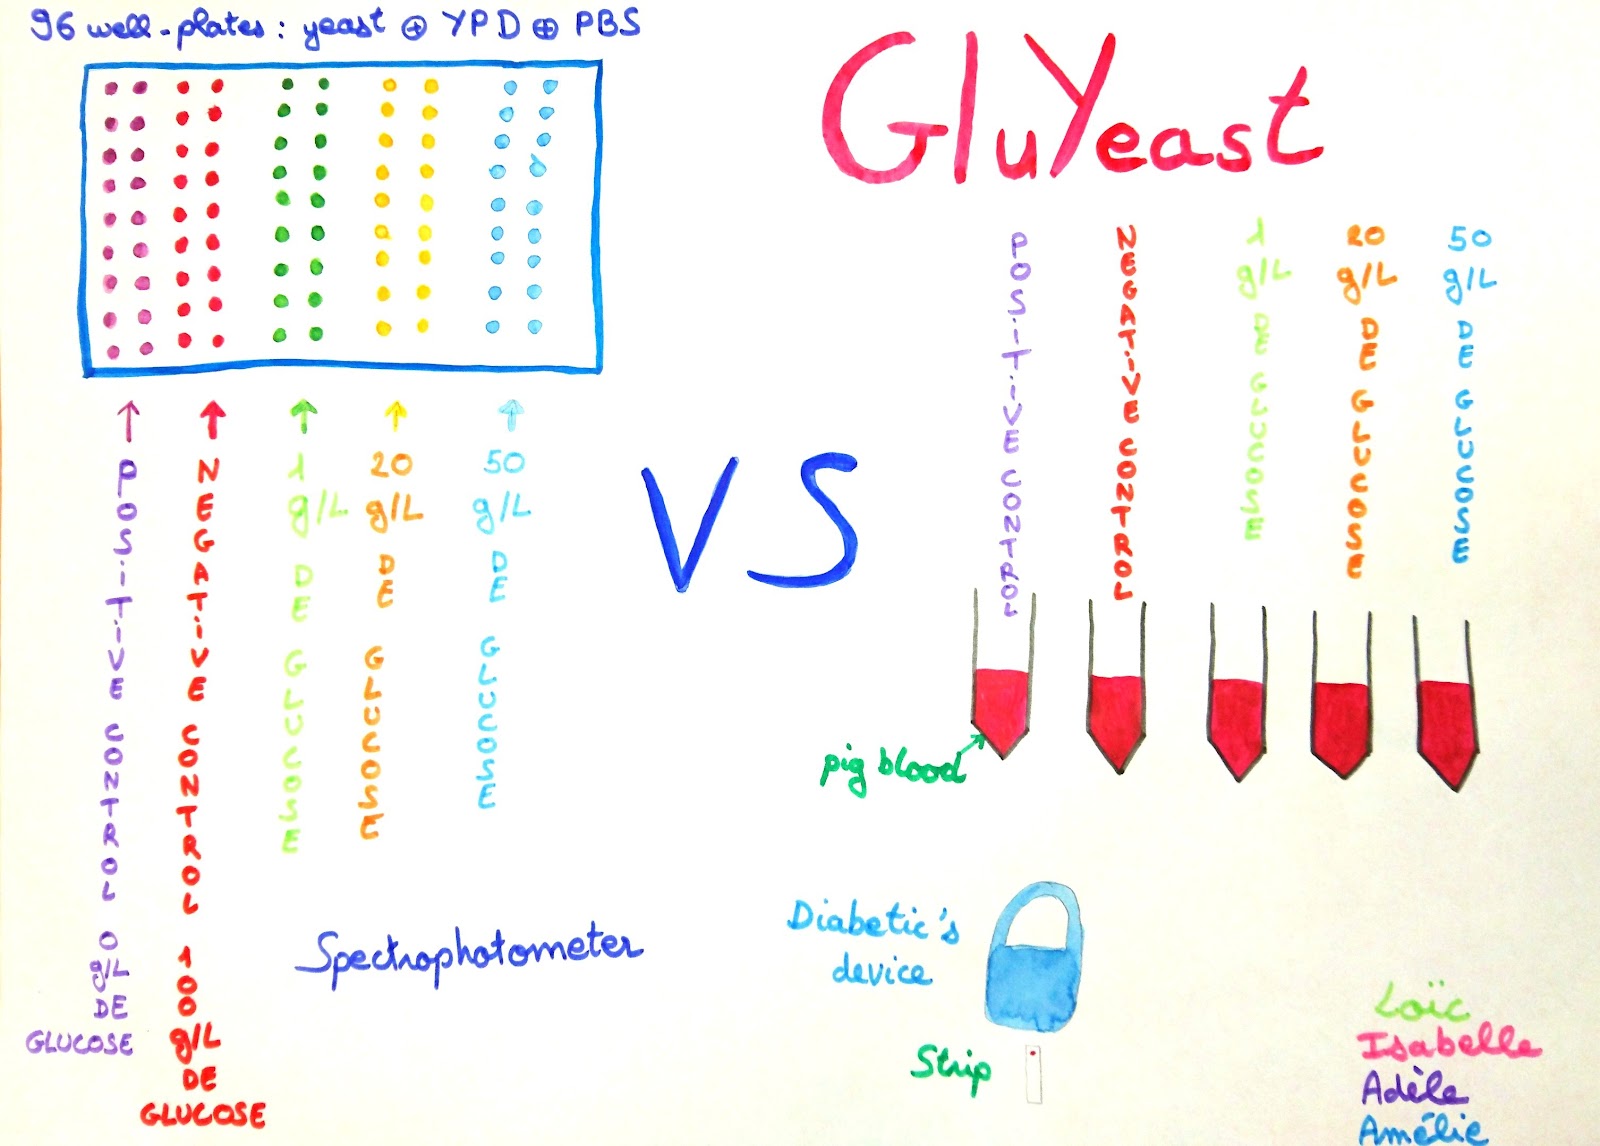 96 well-plates: yeast ⊕ YPD ⊕ PBS
GluYeast
POSITIVE CONTROL 0 g/L DE GLUCOSE
NEGATIVE CONTROL 100 g/L DE GLUCOSE
1 g/L DE GLUCOSE
20 g/L DE GLUCOSE
50 g/L DE GLUCOSE
VS
POSITIVE CONTROL
NEGATIVE CONTROL
1 g/L DE GLUCOSE
20 g/L DE GLUCOSE
50 g/L DE GLUCOSE
pig blood
Spectrophotometer
Diabetic's
device
Strip
Loïc
Isabelle
Adèle
Amélie